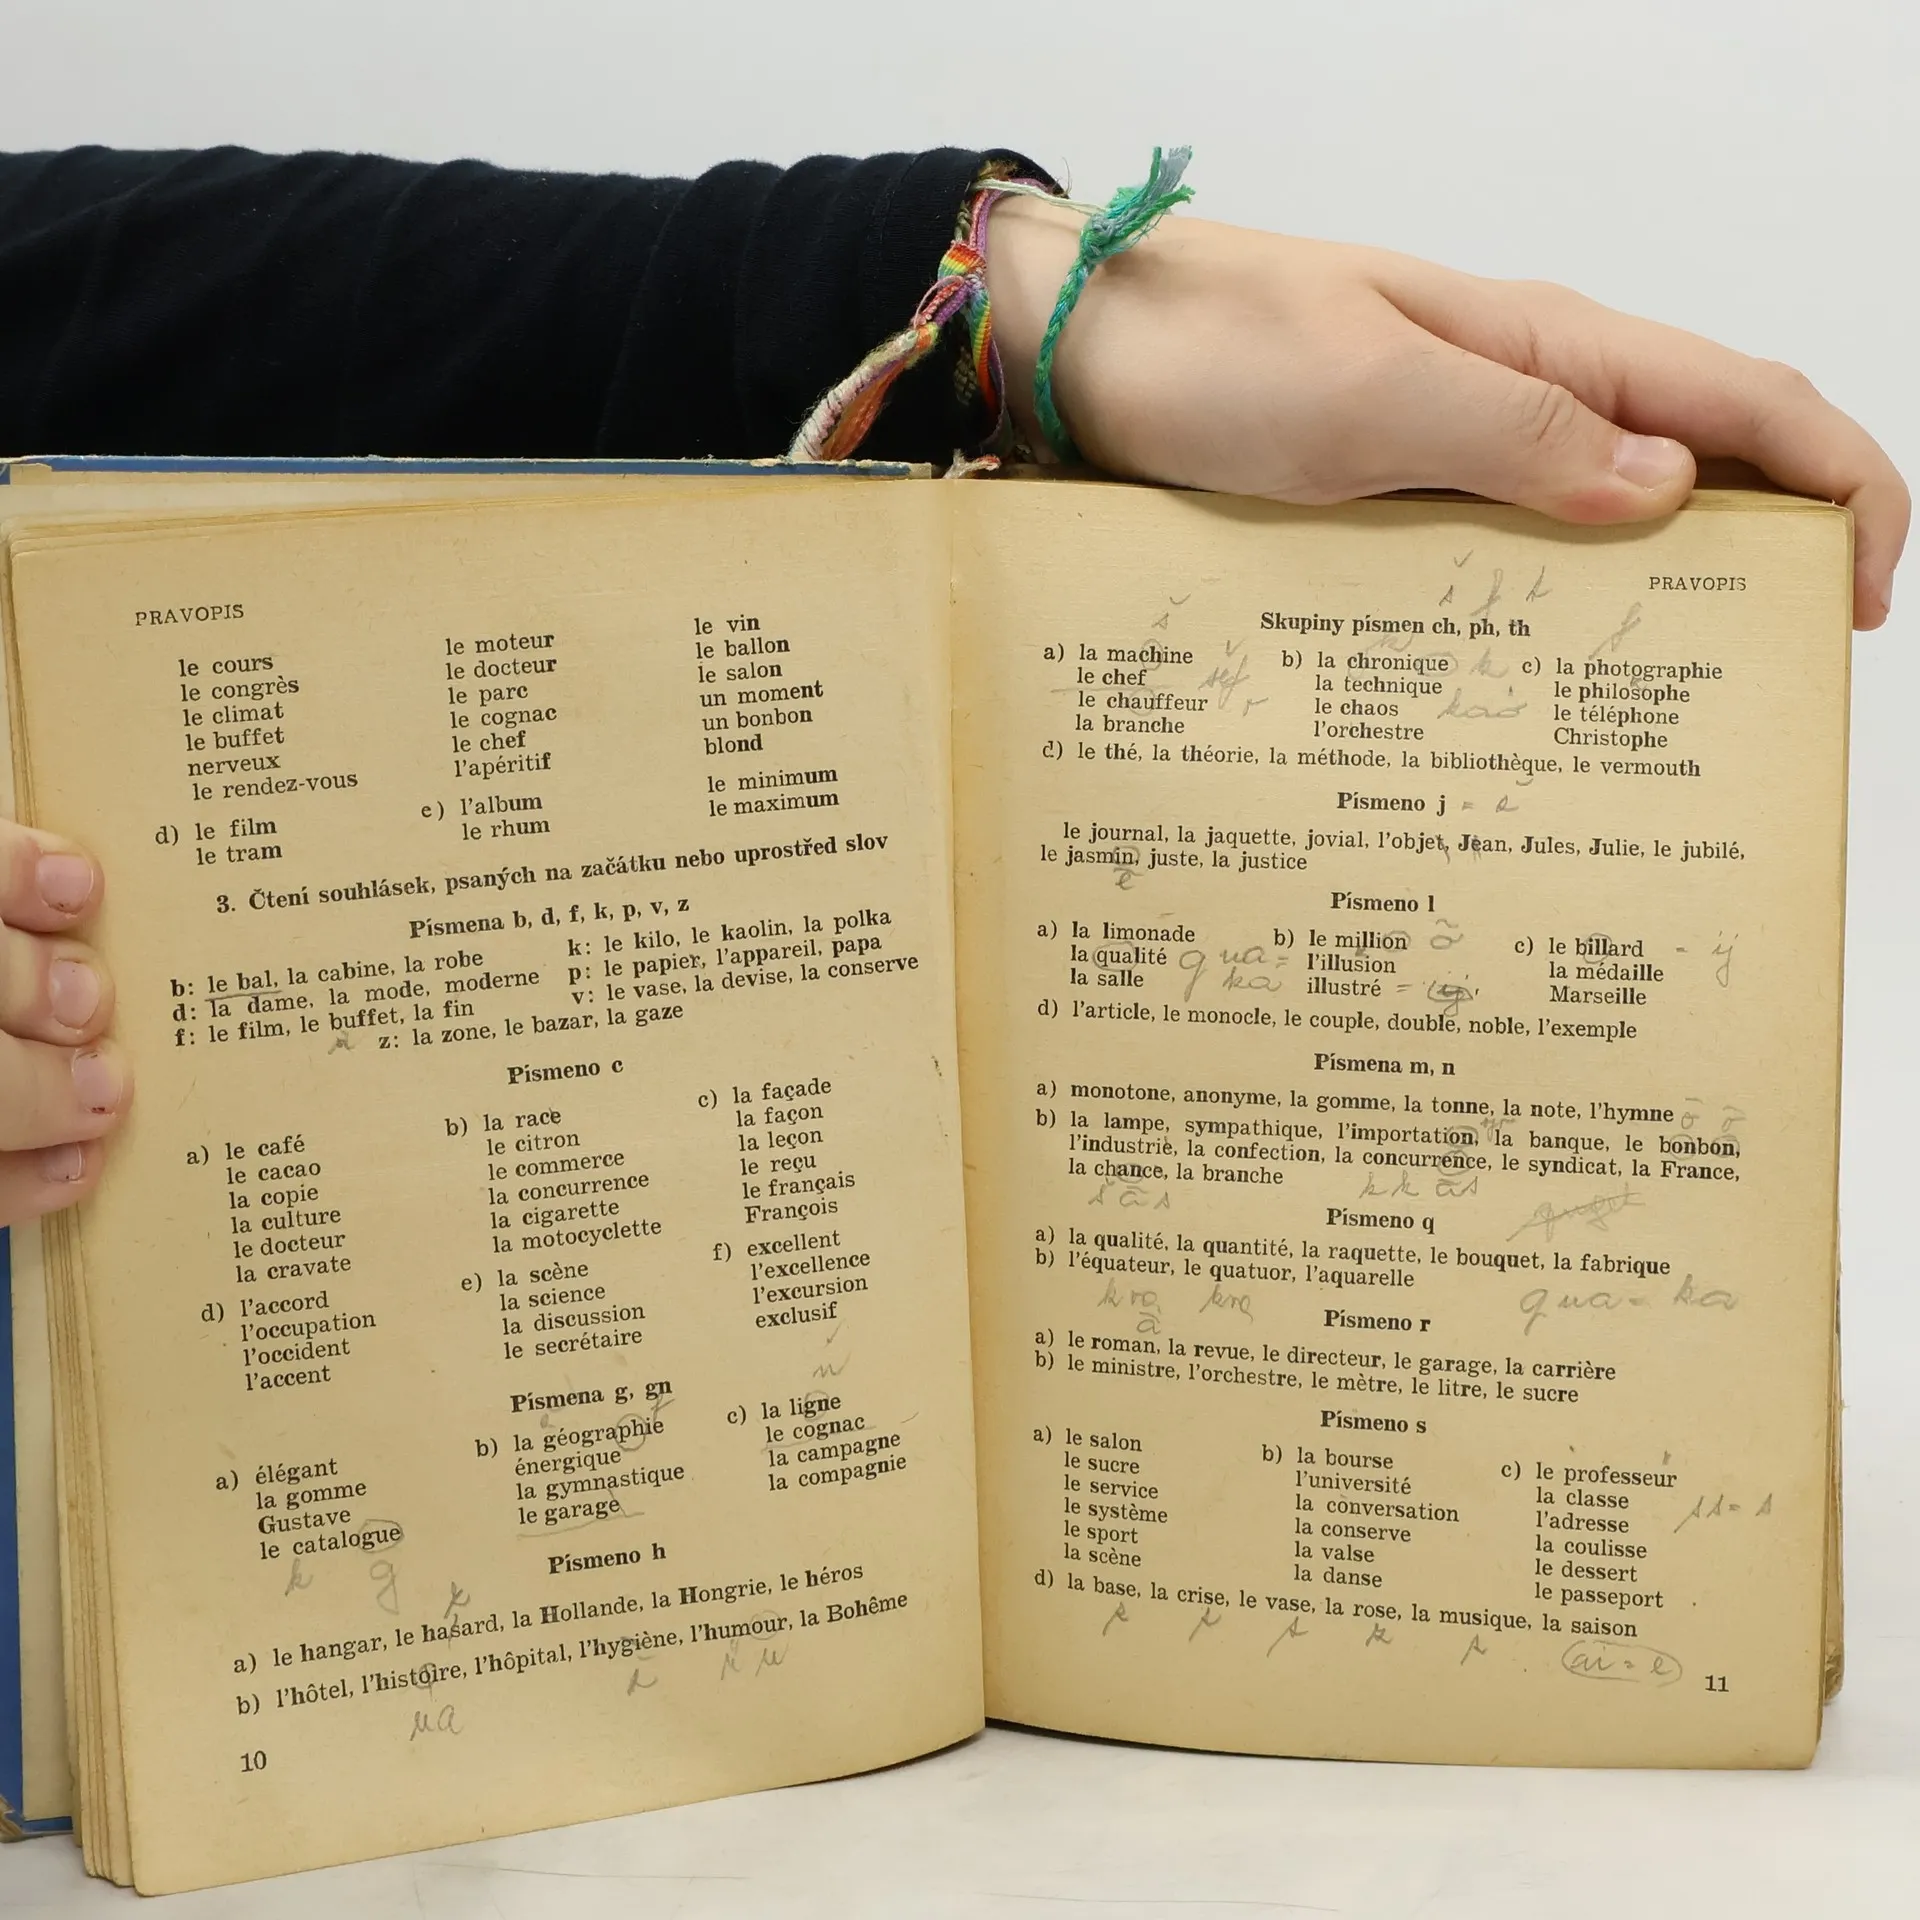 PRAVOPIS
le cours
le congrès
le climat
le buffet
nerveux
le rendez-vous
d) le film
le tram
le moteur
le docteur
le parc
le cognac
le chef
l'apéritif
e) l'album
le rhum
le vin
le ballon
le salon
un moment
un bonbon
blond
le minimum
le maximum
3. Čtení souhlásek, psaných na začátku nebo uprostřed slov
Písmena b, d, f, k, p, v, z
b: le bal, la cabine, la robe
d: la dame, la mode, moderne
f: le film, le buffet, la fin
k: le kilo, le kaolin, la polka
p: le papier, l'appareil, papa
v: le vase, la devise, la conserve
z: la zone, le bazar, la gaze
Písmeno c
a) le café
le cacao
la copie
la culture
le docteur
la cravate
b) la race
le citron
le commerce
la concurrence
la cigarette
la motocyclette
c) la façade
la façon
la leçon
le reçu
le français
François
d) l'accord
l'occupation
l'occident
l'accent
e) la scène
la science
la discussion
le secrétaire
f) excellent
l'excellence
l'excursion
exclusif
Písmena g, gn
a) élégant
la gomme
Gustave
le catalogue
k g
b) la géographie
énergique
la gymnastique
le garage
c) la ligne
le cognac
la campagne
la compagnie
Písmeno h
a) le hangar, le hasard, la Hollande, la Hongrie, le héros
b) l'hôtel, l'histoire, l'hôpital, l'hygiène, l'humour, la Bohême
ua
10
PRAVOPIS
š f t
Skupiny písmen ch, ph, th
a) la machine
le chef
le chauffeur
la branche
b) la chronique
la technique
le chaos
l'orchestre
c) la photographie
le philosophe
le téléphone
Christophe
d) le thé, la théorie, la méthode, la bibliothèque, le vermouth
Písmeno j = ž
le journal, la jaquette, jovial, l'objet, Jean, Jules, Julie, le jubilé,
le jasmin, juste, la justice
Písmeno l
a) la limonade
la qualité
la salle
qua = ka
b) le million
l'illusion
illustré
c) le billard = ij
la médaille
Marseille
d) l'article, le monocle, le couple, double, noble, l'exemple
Písmena m, n
a) monotone, anonyme, la gomme, la tonne, la note, l'hymne
b) la lampe, sympathique, l'importation, la banque, le bonbon,
l'industrie, la confection, la concurrence, le syndicat, la France,
la chance, la branche
š ã s k k ãs
Písmeno q
a) la qualité, la quantité, la raquette, le bouquet, la fabrique
b) l'équateur, le quatuor, l'aquarelle
qua = ka
Písmeno r
a) le roman, la revue, le directeur, le garage, la carrière
b) le ministre, l'orchestre, le mètre, le litre, le sucre
Písmeno s
a) le salon
le sucre
le service
le système
le sport
la scène
b) la bourse
l'université
la conversation
la conserve
la valse
la danse
c) le professeur
la classe
l'adresse
la coulisse
le dessert
le passeport
ss = s
d) la base, la crise, le vase, la rose, la musique, la saison
ai = e
11